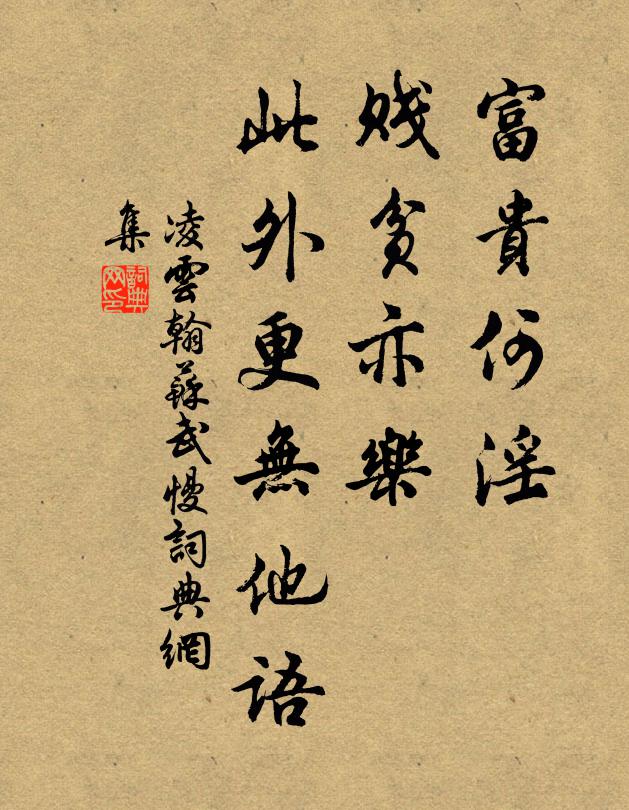 富貴何淫
賤貧亦樂
此外更無他語
凌雲翰蘇武慢詞典網
集
詞典
网印